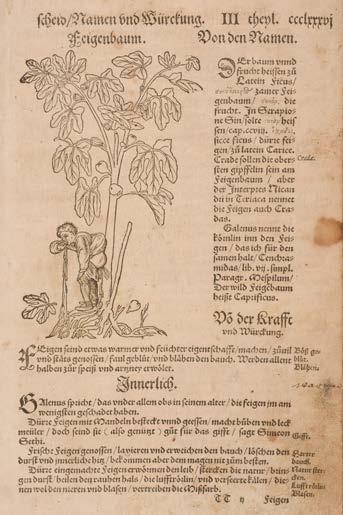 scheid/Namen vnd Würckung. III theyl. ccclxxxvj
Feigenbaum. Von den Namen.
DEr baum vnnd
frucht heissen zů
Latein Ficus/
zamer Fei-
genbaum/ die
frucht. In Serapio-
ne Sin/solte heis-
sen/cap.ccviij.
sicce ficus/ dürre fei-
gen/zů latein Carice.
Crade sollen die ober- Crade.
sten gipffelin sein am
Feigenbaum / aber
der Interpres Nican
dri in Teriaca nennet
die Feigen auch Cra-
das.
Galenus nennt die
kömlin inn den Fei-
gen/das ich für den
samen halt/Cenchra-
midas/lib. vij. simpl.
Paragr. Mespilum/
Der wild Feigēbaum
heißt Caprificus.
Vō der Krafft
vnd Würckung.
FEigen seind etwas warmer vnd feüchter eigentschafft/machen/zůuil Böß ge
vnd stäts genossen/faul geblůt/vnd blåhen den bauch. Werden allent blůt.
halben zur speiß vnd artzney erwölet. Blåhen.
Innerlich.
Galenus spricht/das vnder allem obs in seinem alter/die feigen jm am
wenigsten geschadet haben.
Dürre Feigen mit Mandeln besteckt vnnd gessen/ mache büben vnd leck
meüler / doch seind sie (also genützt) gůt für das gifft / sagt Simeon Gifft.
Sethi.
Frische Feigen genossen/laxieren vnd erweichen den bauch/löschen den Harter
durst vnd innerlich hitz/bekommen aber dem magen nit zům besten. bauch.
Dürre eingemachte Feigen erwörmen den leib/stercken die natur/brin- Natur ster-
gen durst/heilen den rauhen hals/die lufftrörlin/vnd verseerte källen/die cken.
nen wol den nieren vnd blasen/vertreiben die Mißfarb; Lufftrörlin
Blasen.
TT ij Feigen